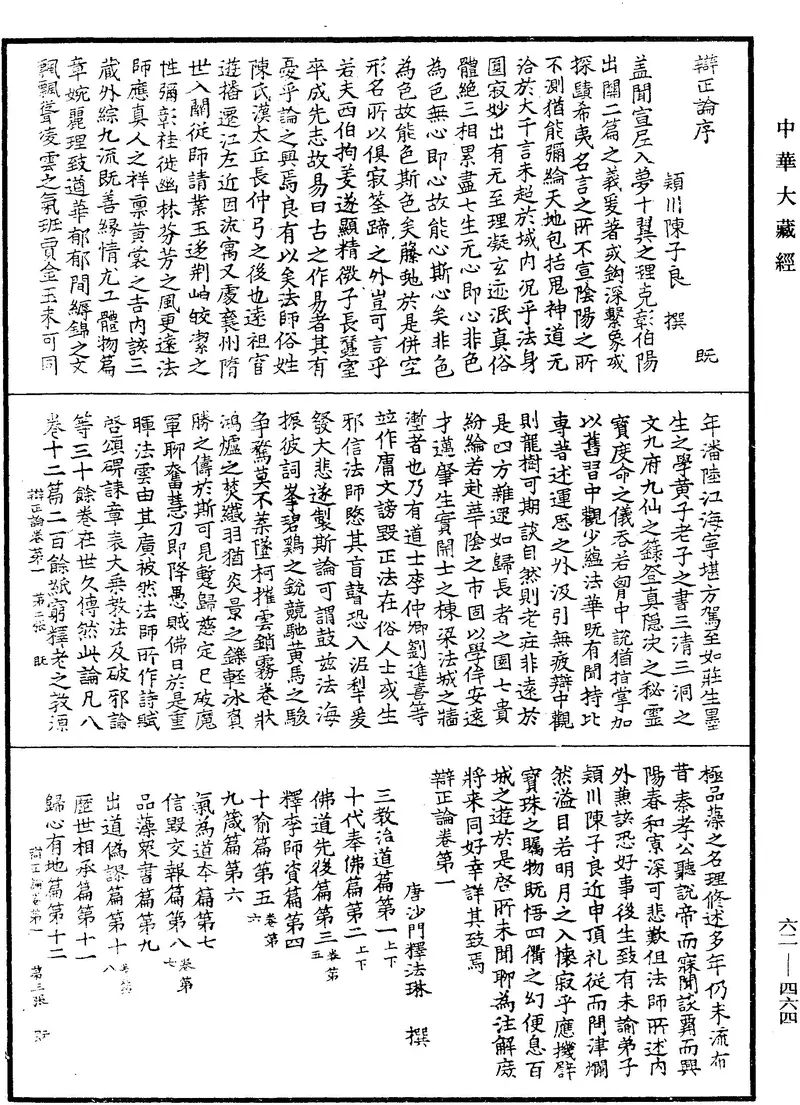 中華大藏經
辯正論序
潁川陳子良　撰　旣
蓋聞宣尼入夢十翼之理克彰伯陽
出關二篇之義爰著或鈎深繫象或
探賾希夷名言之所不宣陰陽之所
不測猶能彌綸天地包括鬼神道无
洽於大千言未超於域内況乎法身
圓寂妙出有无至理凝玄迹泯真俗
體絶三相累盡七生无心即心非色
為色無心即心故能心斯心矣非色
為色故能色斯色矣藤虵於是併空
形名所以俱寂筌蹄之外豈可言乎
若夫西伯拘羑遂顯精微子長蠶室
卒成先志故易曰古之作易者其有
憂乎論之興焉良有以矣法師俗姓
陳氏漢太丘長仲弓之後也遠祖官
遊播遷江左近因流寓又處襄州隋
世入關從師請業玉迻荆岫皎潔之
性彌彰桂徙幽林芬芳之風更遠法
師應真人之祥禀黄裳之吉内該三
藏外綜九流既善緣情尤工體物篇
章婉麗理致遒華郁郁間縟錦之文
飄飄聳凌雲之氣班賈金玉未可同
年潘陸江海寧堪方駕至如莊生墨
生之學黄子老子之書三清三洞之
文九府九仙之籙登真隱决之秘靈
寳度命之儀吞若胷中說猶指掌加
以舊習中觀少蘊法華既有聞持比
專著述運悉之外汲引無疲辯中觀
則龍樹可期談自然則老莊非遠於
是四方雜遝如歸長者之園七貴
紛綸若赴華陰之市固以學侔安遠
才邁肇生實開士之棟梁法城之牆
壍者也乃有道士李仲卿劉進喜等
竝作庸文謗毀正法在俗人士或生
邪信法師愍其盲瞽恐入泥犁爰
發大悲遂製斯論可謂鼓兹法海
振彼詞峯碧鷄之銳競馳黄馬之駿
争騖莫不葉墜柯摧雲銷霧卷狀
鴻爐之焚纖羽猶炎景之鑠輕冰負
勝之儔於斯可見蹔歸慈定已破魔
軍聊奮慧刀即降愚賊佛日於是重
暉法雲由其廣被然法師所作詩賦
啓頌碑誄章表大乗教法及破邪論
等三十餘卷在世久傳然此論凡八
卷十二篇二百餘紙窮釋老之教源
辯正論卷第一　第二張　旣
極品藻之名理修述多年仍未流布
昔秦孝公聽説帝而寐聞談霸而興
陽春和寡深可悲歎但法師所述内
外兼該恐好事後生致有未諭弟子
潁川陳子良近申頂礼從而問津爛
然溢目若明月之入懷寂乎應機譬
寳珠之矚物既悟四衢之幻便息百
城之遊於是啓所未聞聊為注解庶
將来同好幸詳其致焉
辯正論卷第一
唐沙門釋法琳　撰
三教治道篇第一上下
十代奉佛篇第二上下
佛道先後篇第三卷第五
釋李師資篇第四
十喻篇第五卷第六
九箴篇第六
氣為道本篇第七
信毀交報篇第八卷第
品藻衆書篇第九
出道偽謬篇第十卷第八
歷世相承篇第十一
歸心有地篇第十二
辯正論卷第一　第三張　旣
六二—四六四